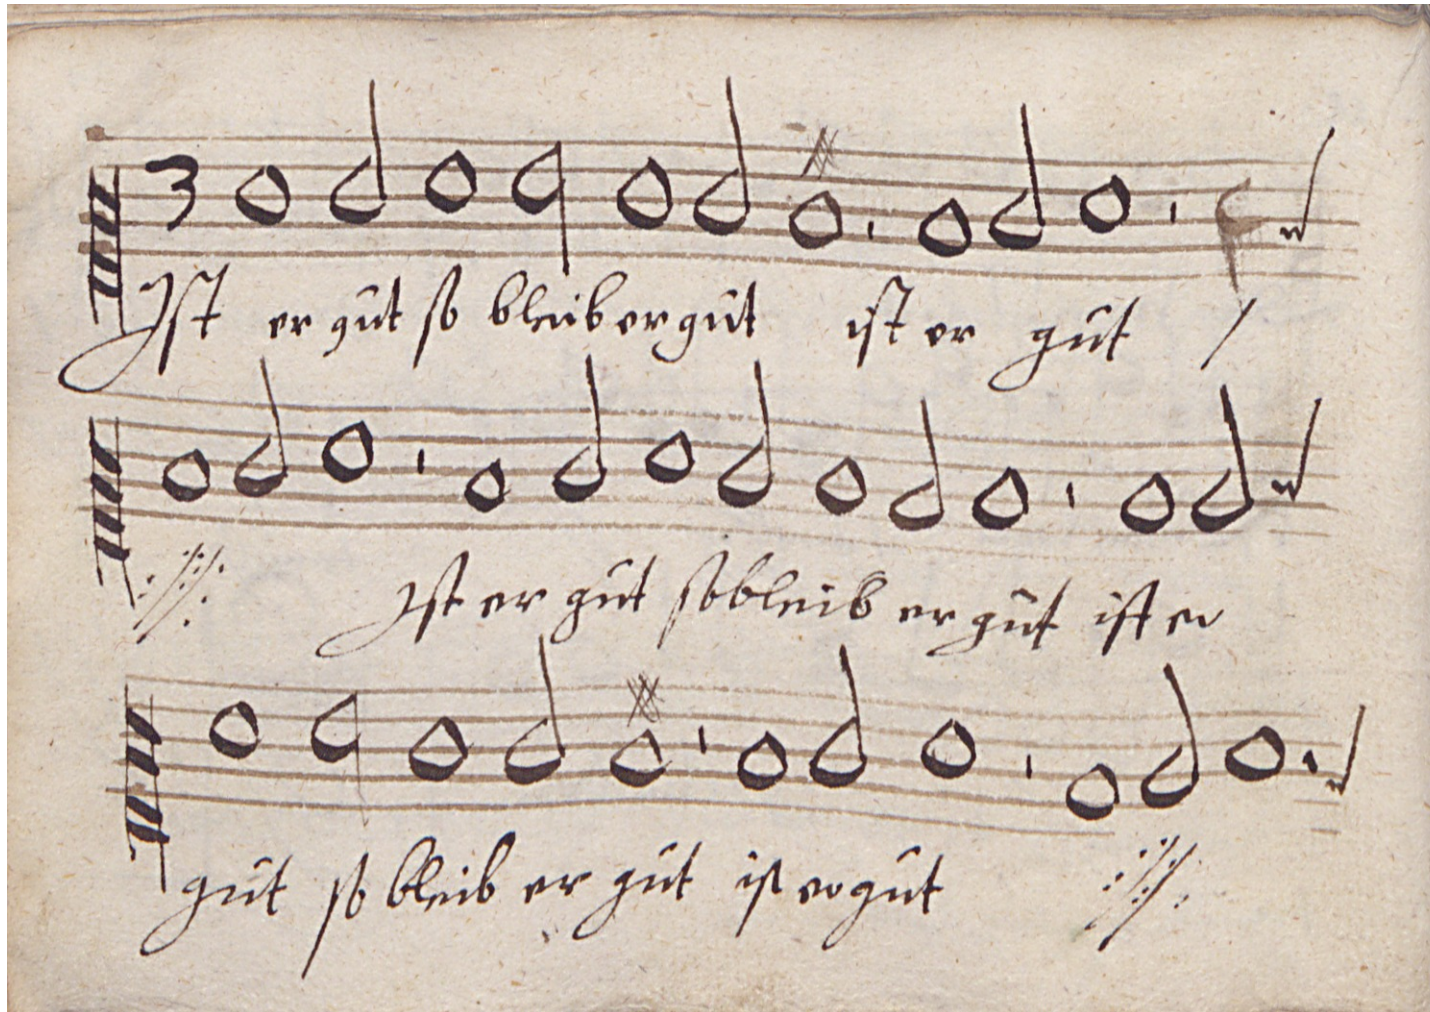 3
Ist er gut so bleib er gut ist er gut /
Ist er gut so bleib er gut ist er
gut so bleib er gut ist er gut